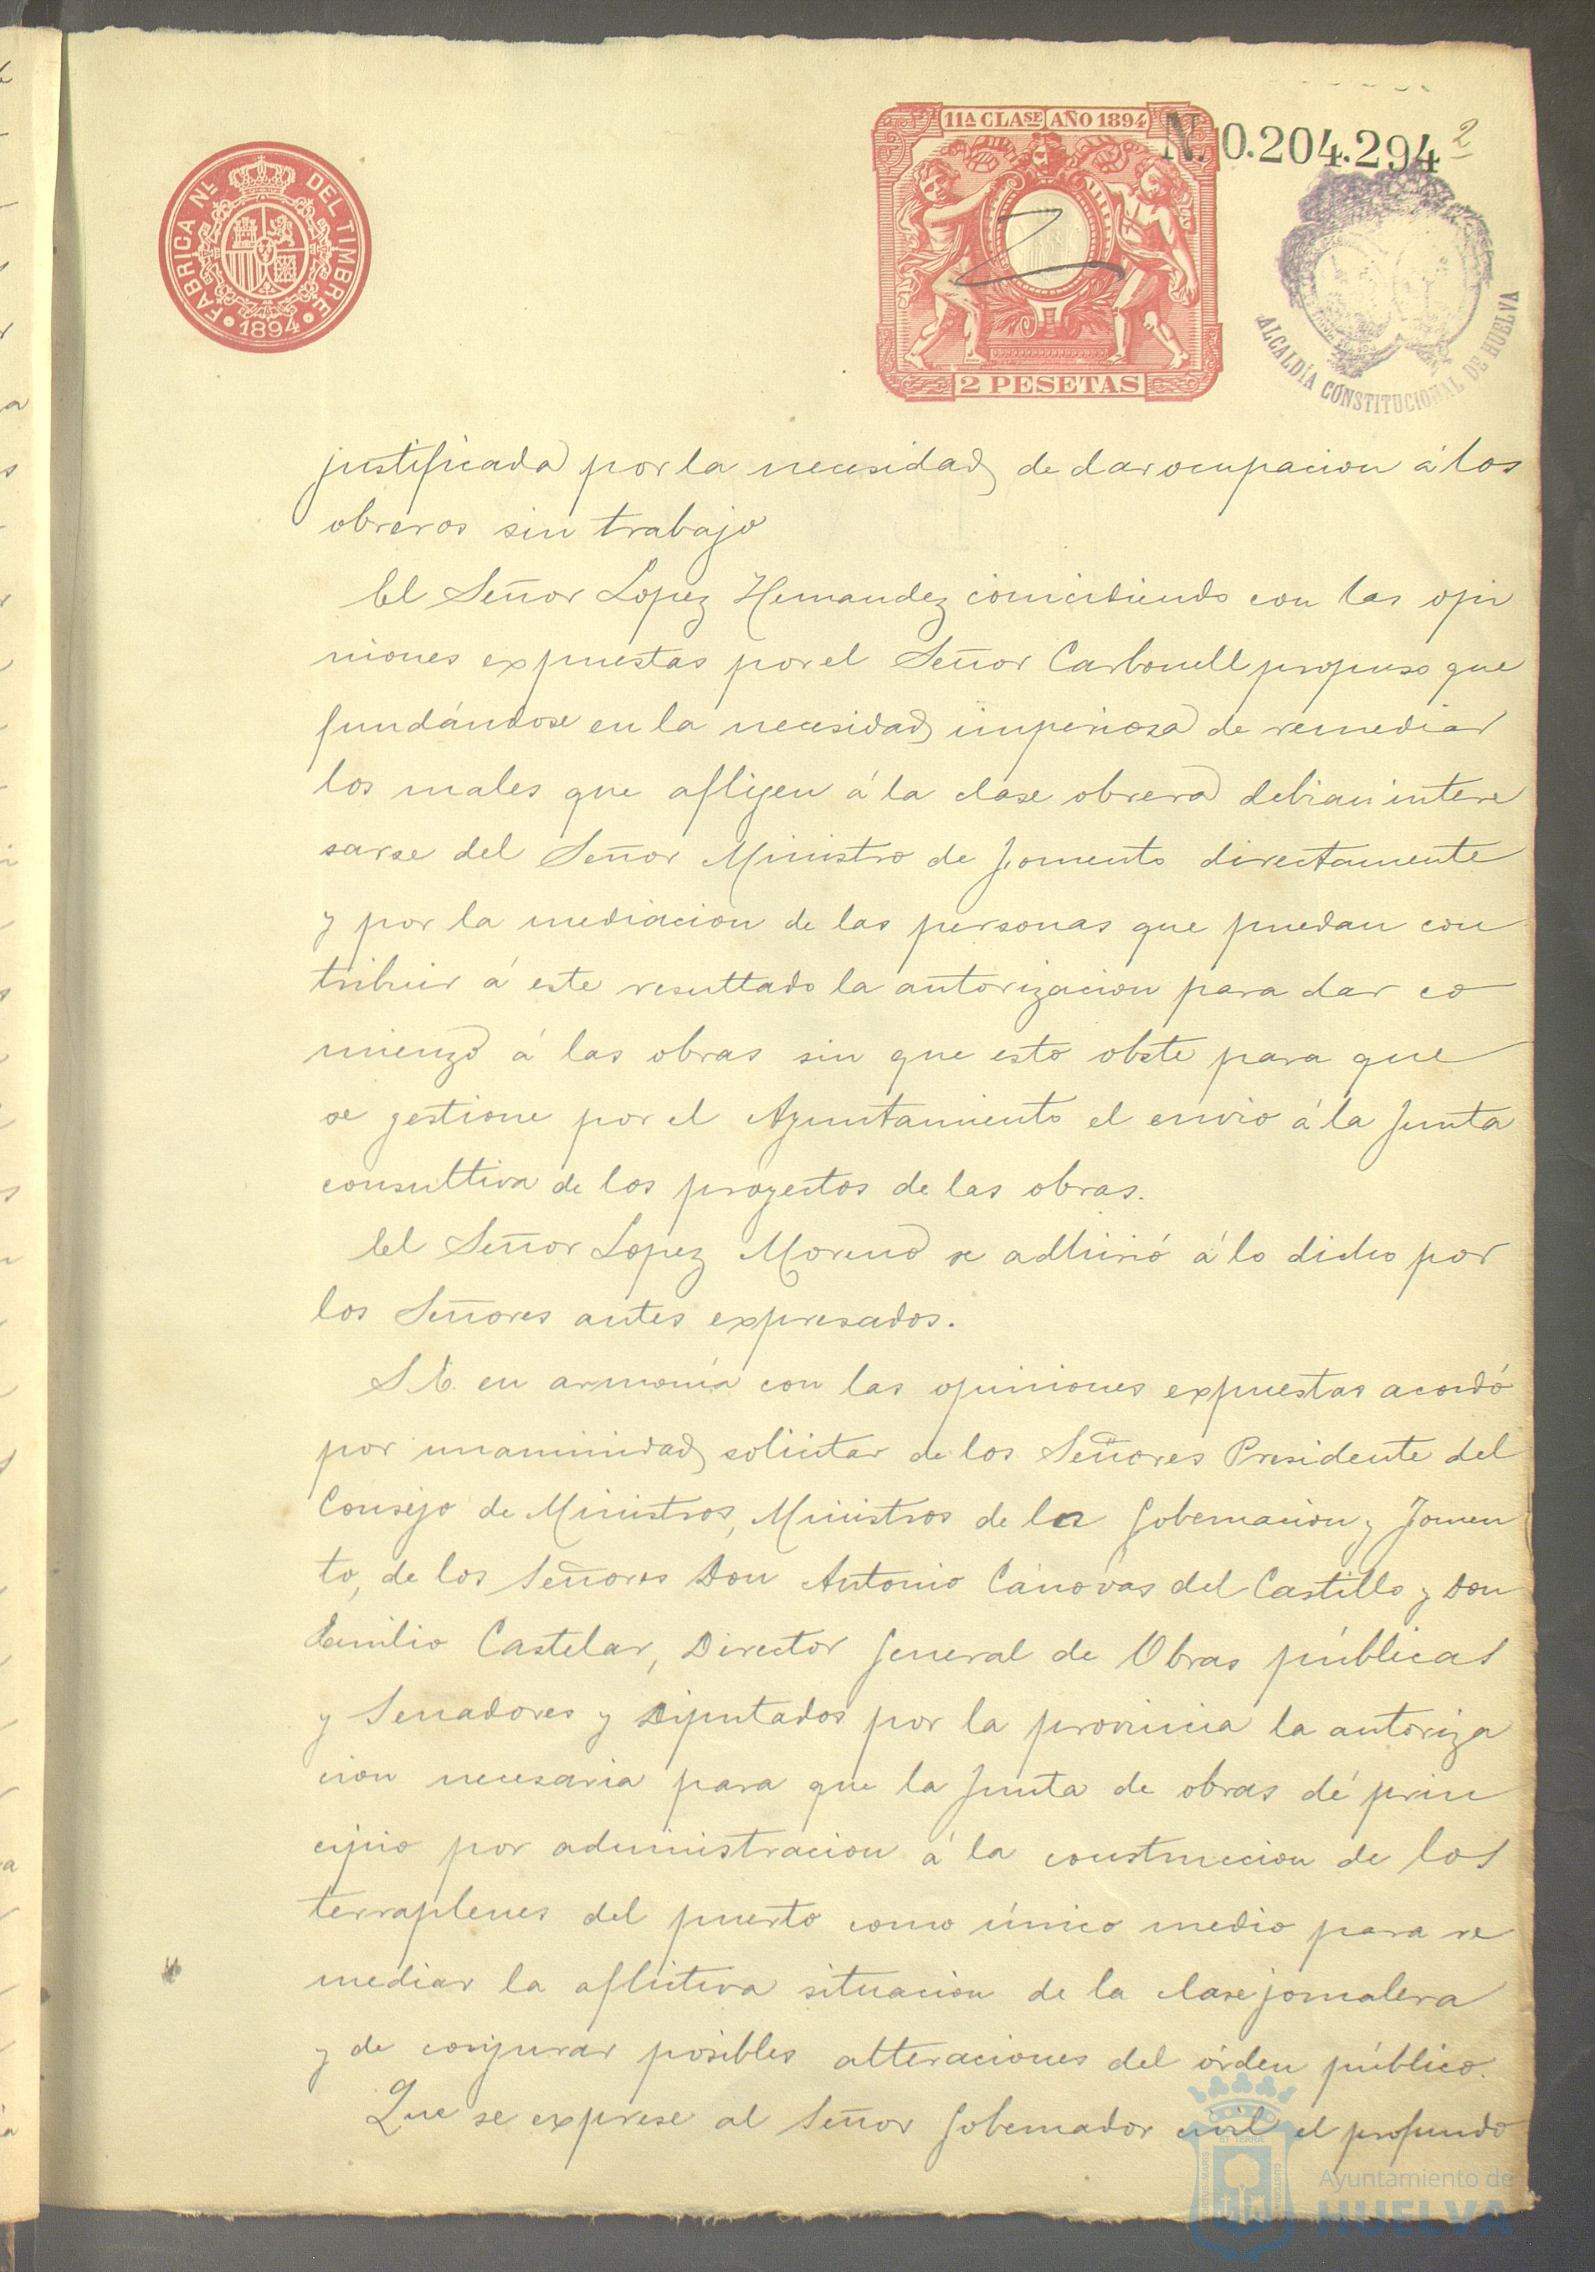 11ª CLASE AÑO 1894
N. 0.204.294
2
FABRICA Nˡ DEL TIMBRE
1894
2 PESETAS
ALCALDÍA CONSTITUCIONAL DE HUELVA
justificada por la necesidad de dar ocupacion á los
obreros sin trabajo
El Señor Lopez Hernandez coincidiendo con las opi
niones expuestas por el Señor Carbonell propuso que
fundándose en la necesidad imperiosa de remediar
los males que afligen á la clase obrera debian intere
sarse del Señor Ministro de Fomento directamente
y por la mediacion de las personas que puedan con
tribuir á este resultado la autorizacion para dar co
mienzo á las obras sin que esto obste para que
se gestione por el Ayuntamiento el envio á la Junta
consultiva de los proyectos de las obras.
El Señor Lopez Moreno se adhirió á lo dicho por
los Señores antes expresados.
S.E. en armonía con las opiniones expuestas acordó
por unanimidad solicitar de los Señores Presidente del
Consejo de Ministros, Ministros de la Gobernacion y Fomen
to, de los Señores Don Antonio Cánovas del Castillo y Don
Emilio Castelar, Director General de Obras públicas
y Senadores y Diputados por la provincia la autoriza
cion necesaria para que la Junta de obras dé prin
cipio por administracion á la construccion de los
terraplenes del puerto como único medio para re
mediar la aflictiva situacion de la clase jornalera
y de conjurar posibles alteraciones del órden público.
Que se exprese al Señor Gobernador civil el profundo
Ayuntamiento de
HUELVA